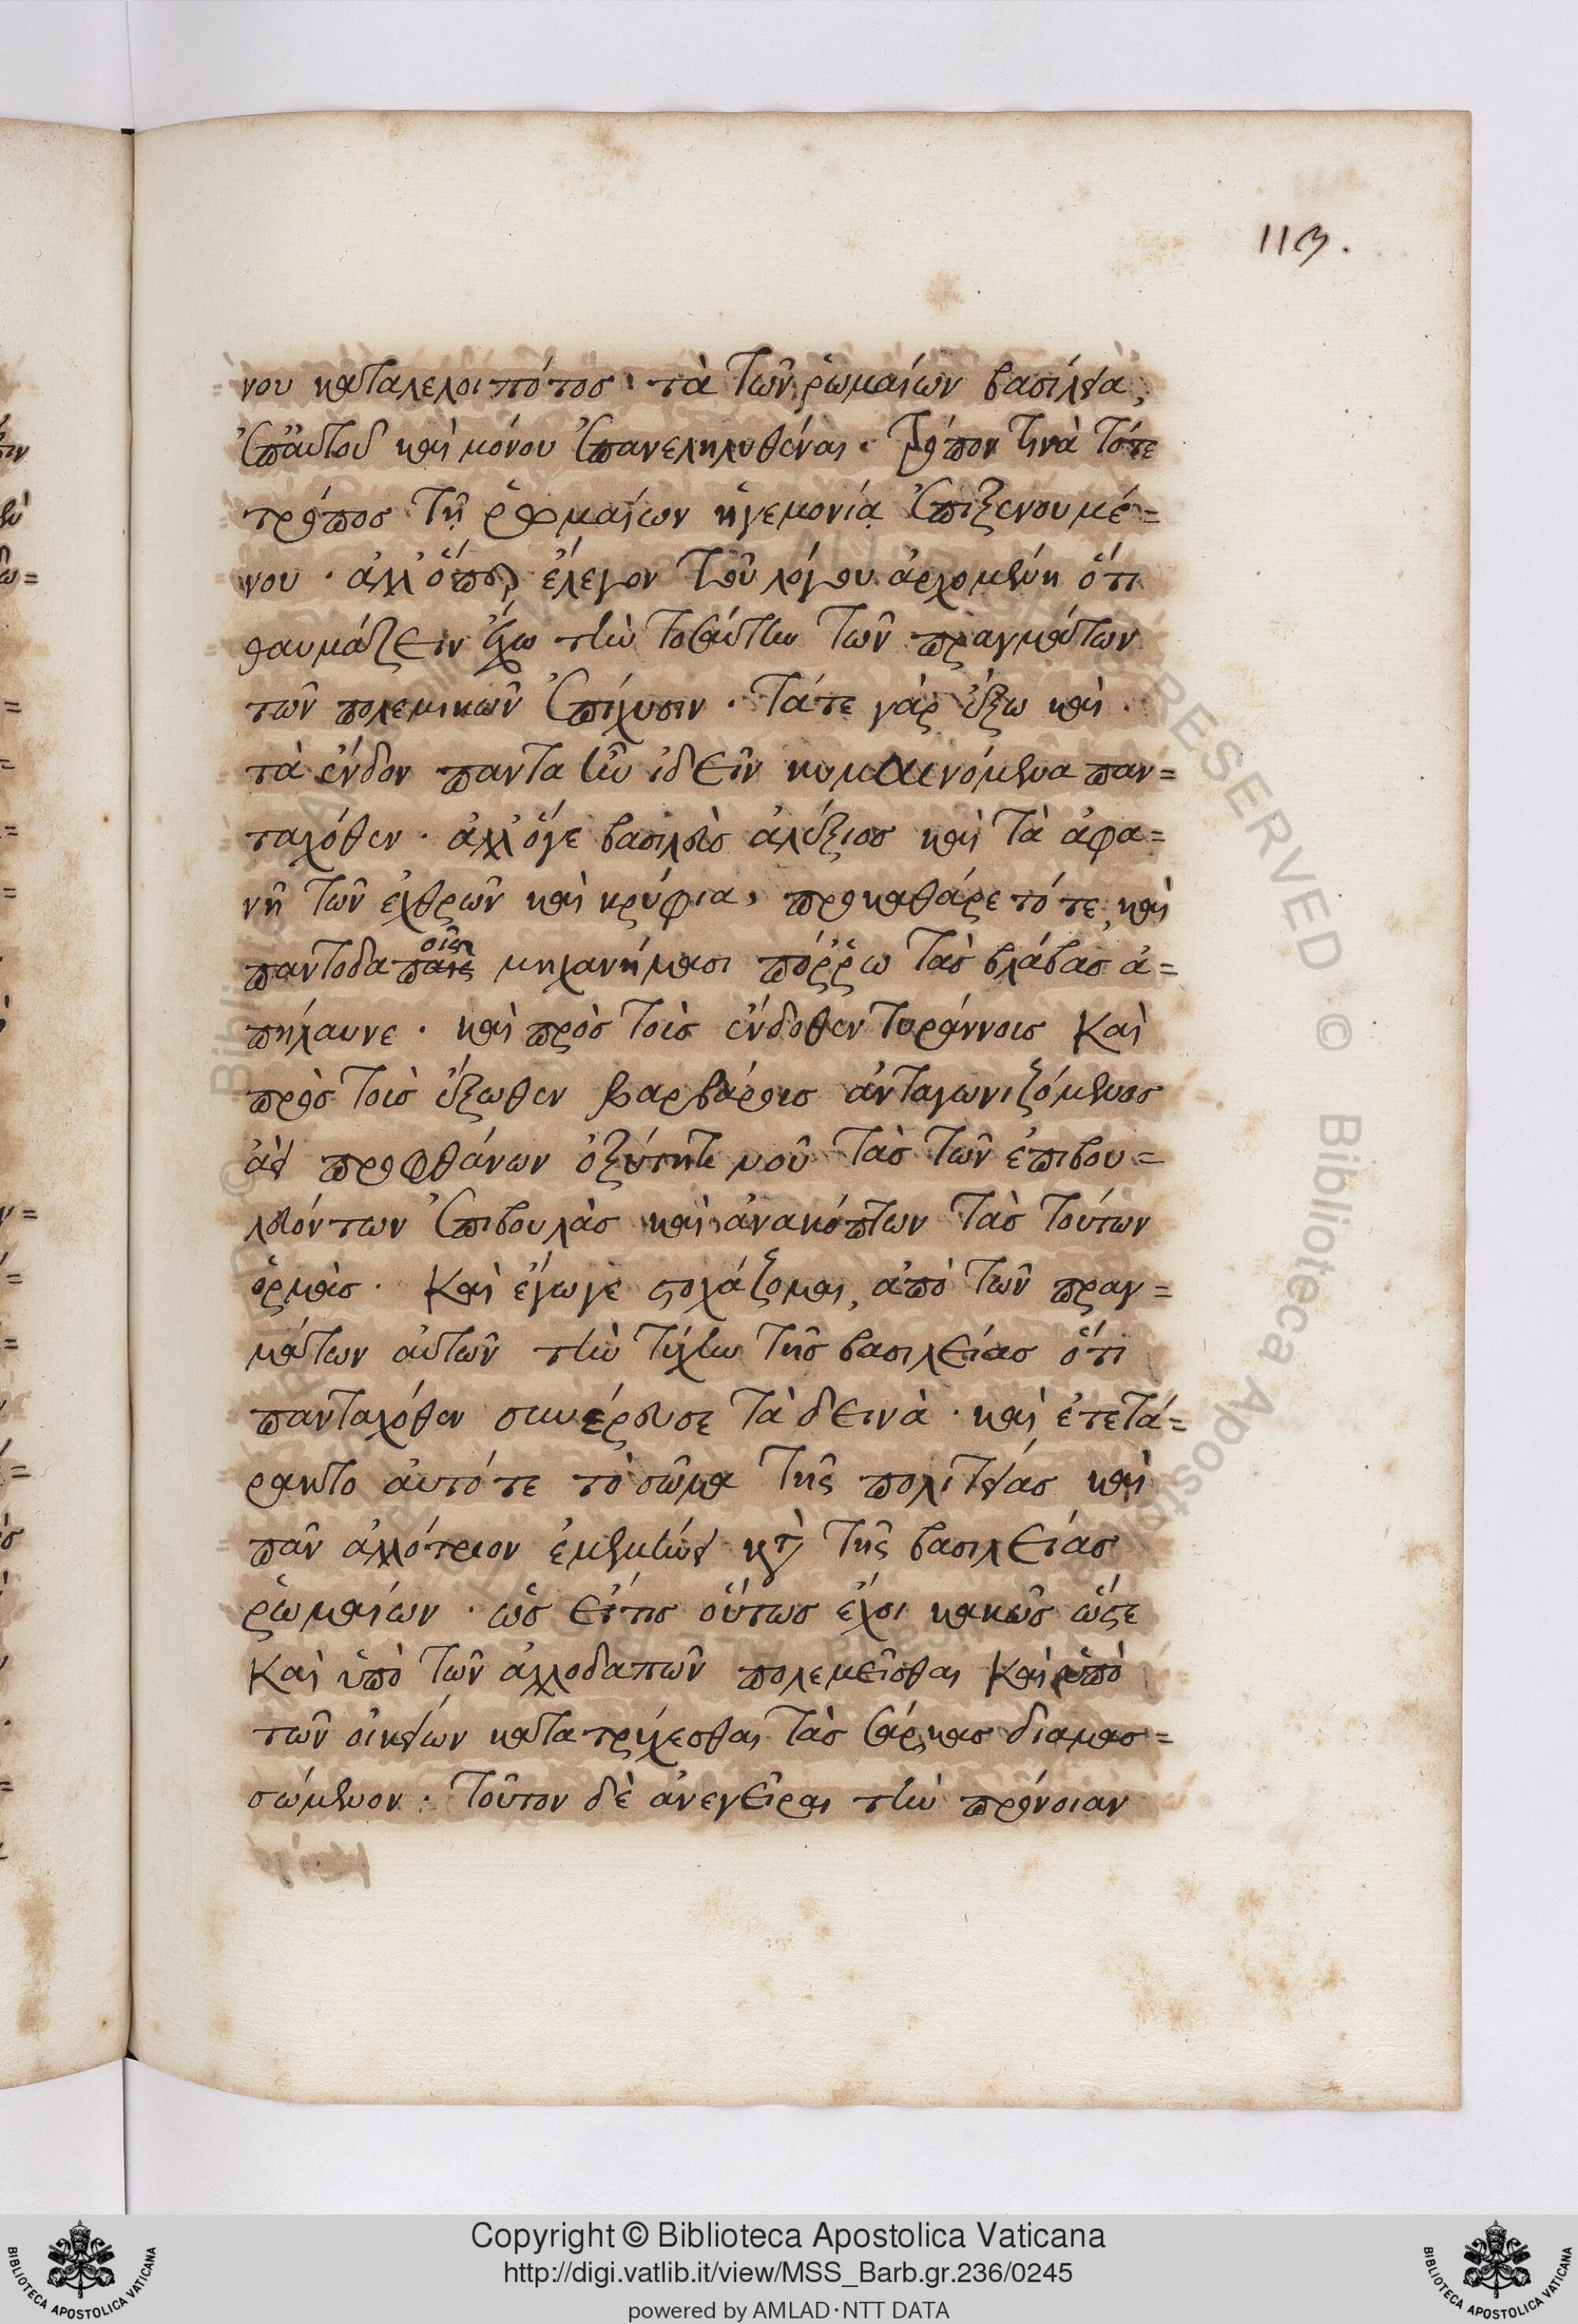 113.
νου καταλελοιπότος· τὰ τῶν ῥωμαίων βασίλεια,
ἐπ' αὐτοῦ καὶ μόνου ἐπανεληλυθέναι. τρόπον τινὰ τότε
τρόπος τῇ ῥωμαίων ἡγεμονίᾳ ἐπιξενουμέ=
νου. ἀλλ' ὅπερ ἔλεγον τοῦ λόγου ἀρχομένη ὅτι
θαυμάζειν ἔχω τὴν τοσαύτην τῶν πραγμάτων
τῶν πολεμικῶν ἐπίχυσιν. τά τε γὰρ ἔξω καὶ
τὰ ἔνδον πάντα ἦν ἰδεῖν κυμαινόμενα παν=
ταχόθεν. ἀλλ' ὅγε βασιλεὺς ἀλέξιος καὶ τὰ ἀφα=
νῆ τῶν ἐχθρῶν καὶ κρύφια, προκαθάρετό τε, καὶ
παντοδαποῖς μηχανήμασι πόῤῥω τὰς βλάβας ἀ=
πήλαυνε. καὶ πρὸς τοῖς ἔνδοθεν τυράννοις καὶ
πρὸς τοῖς ἔξωθεν βαρβάροις ἀνταγωνιζόμενος
ἀεὶ προφθάνων ὀξύτητι νοῦ τὰς τῶν ἐπιβου=
λευόντων ἐπιβουλὰς καὶ ἀνακόπτων τὰς τούτων
ὁρμὰς. καὶ ἔγωγε στοχάζομαι, ἀπὸ τῶν πραγ=
μάτων αὐτῶν τὴν τύχην τῆς βασιλείας ὅτι
πανταχόθεν συνέρευσε τὰ δεινὰ. καὶ ἐτετά=
ρακτο αὐτό τε τὸ σῶμα τῆς πολιτείας καὶ
πᾶν ἀλλότριον ἐμεμήνει κατὰ τῆς βασιλείας
ῥωμαίων. ὡς εἴτις οὕτως ἔχοι κακῶς ὥστε
καὶ ὑπὸ τῶν ἀλλοδαπῶν πολεμεῖσθαι καὶ ὑπὸ
τῶν οἰκείων κατατρύχεσθαι τὰς σάρκας διαμασ=
σώμενον. τοῦτον δὲ ἀνεγεῖραι τὴν πρόνοιαν
Copyright © Biblioteca Apostolica Vaticana
http://digi.vatlib.it/view/MSS_Barb.gr.236/0245
powered by AMLAD·NTT DATA
BIBLIOTECA APOSTOLICA VATICANA
BIBLIOTECA APOSTOLICA VATICANA